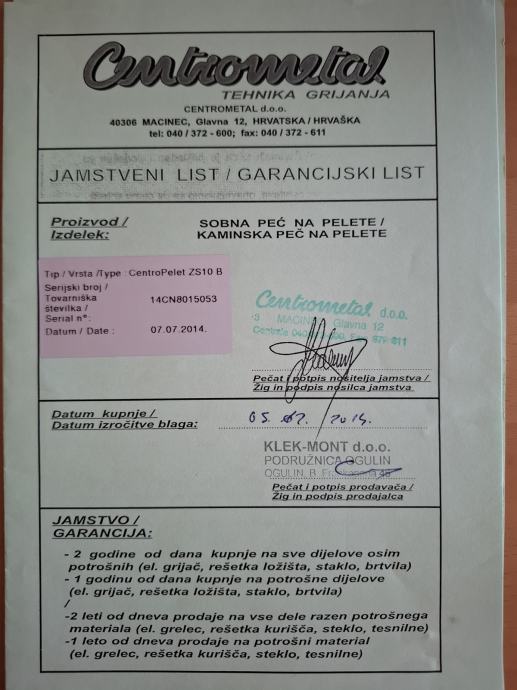 Centrometal
TEHNIKA GRIJANJA
CENTROMETAL d.o.o.
40306 MACINEC, Glavna 12, HRVATSKA / HRVAŠKA
tel: 040 / 372 - 600; fax: 040 / 372 - 611
JAMSTVENI LIST / GARANCIJSKI LIST
Proizvod / Izdelek:
SOBNA PEĆ NA PELETE /
KAMINSKA PEČ NA PELETE
Tip / Vrsta /Type : CentroPelet ZS10 B
Serijski broj /
Tovarniška
številka /
Serial n°:
14CN8015053
Datum / Date : 07.07.2014.
Centrometal d.o.o.
MACINEC, Glavna 12
Pečat i potpis nositelja jamstva /
Žig in podpis nosilca jamstva
Datum kupnje /
Datum izročitve blaga:
05. 2014.
KLEK-MONT d.o.o.
PODRUŽNICA OGULIN
OGULIN, B.
Pečat i potpis prodavača /
Žig in podpis prodajalca
JAMSTVO /
GARANCIJA:
- 2 godine od dana kupnje na sve dijelove osim
potrošnih (el. grijač, rešetka ložišta, staklo, brtvila)
- 1 godinu od dana kupnje na potrošne dijelove
(el. grijač, rešetka ložišta, staklo, brtvila)
/
-2 leti od dneva prodaje na vse dele razen potrošnega
materiala (el. grelec, rešetka kurišča, steklo, tesnilne)
-1 leto od dneva prodaje na potrošni material
(el. grelec, rešetka kurišča, steklo, tesnilne)